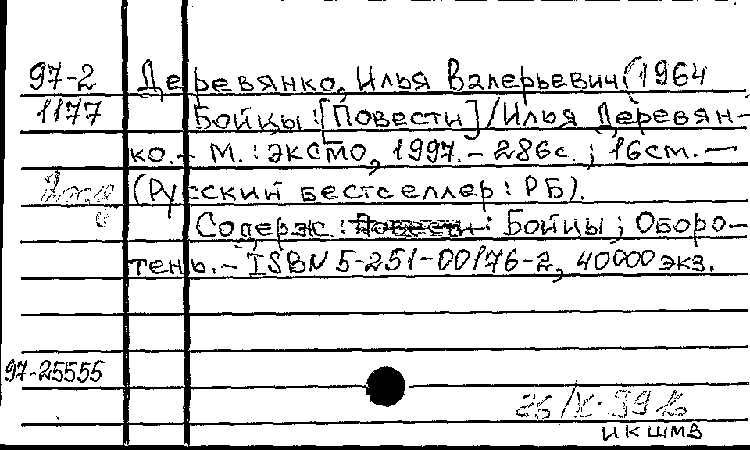 97-2 Деревянко, Илья Валерьевич (1964
1177 Бойцы : [Повести] / Илья Деревян-
ко. - М. : ЭКСМО, 1997. - 286с. ; 16см. —
(Русский бестселлер : РБ).
Содерж : Повести : Бойцы ; Оборо-
тень. - ISBN 5-251-00176-2, 40000 экз.
97-25555
26/X-99
ИКШМВ